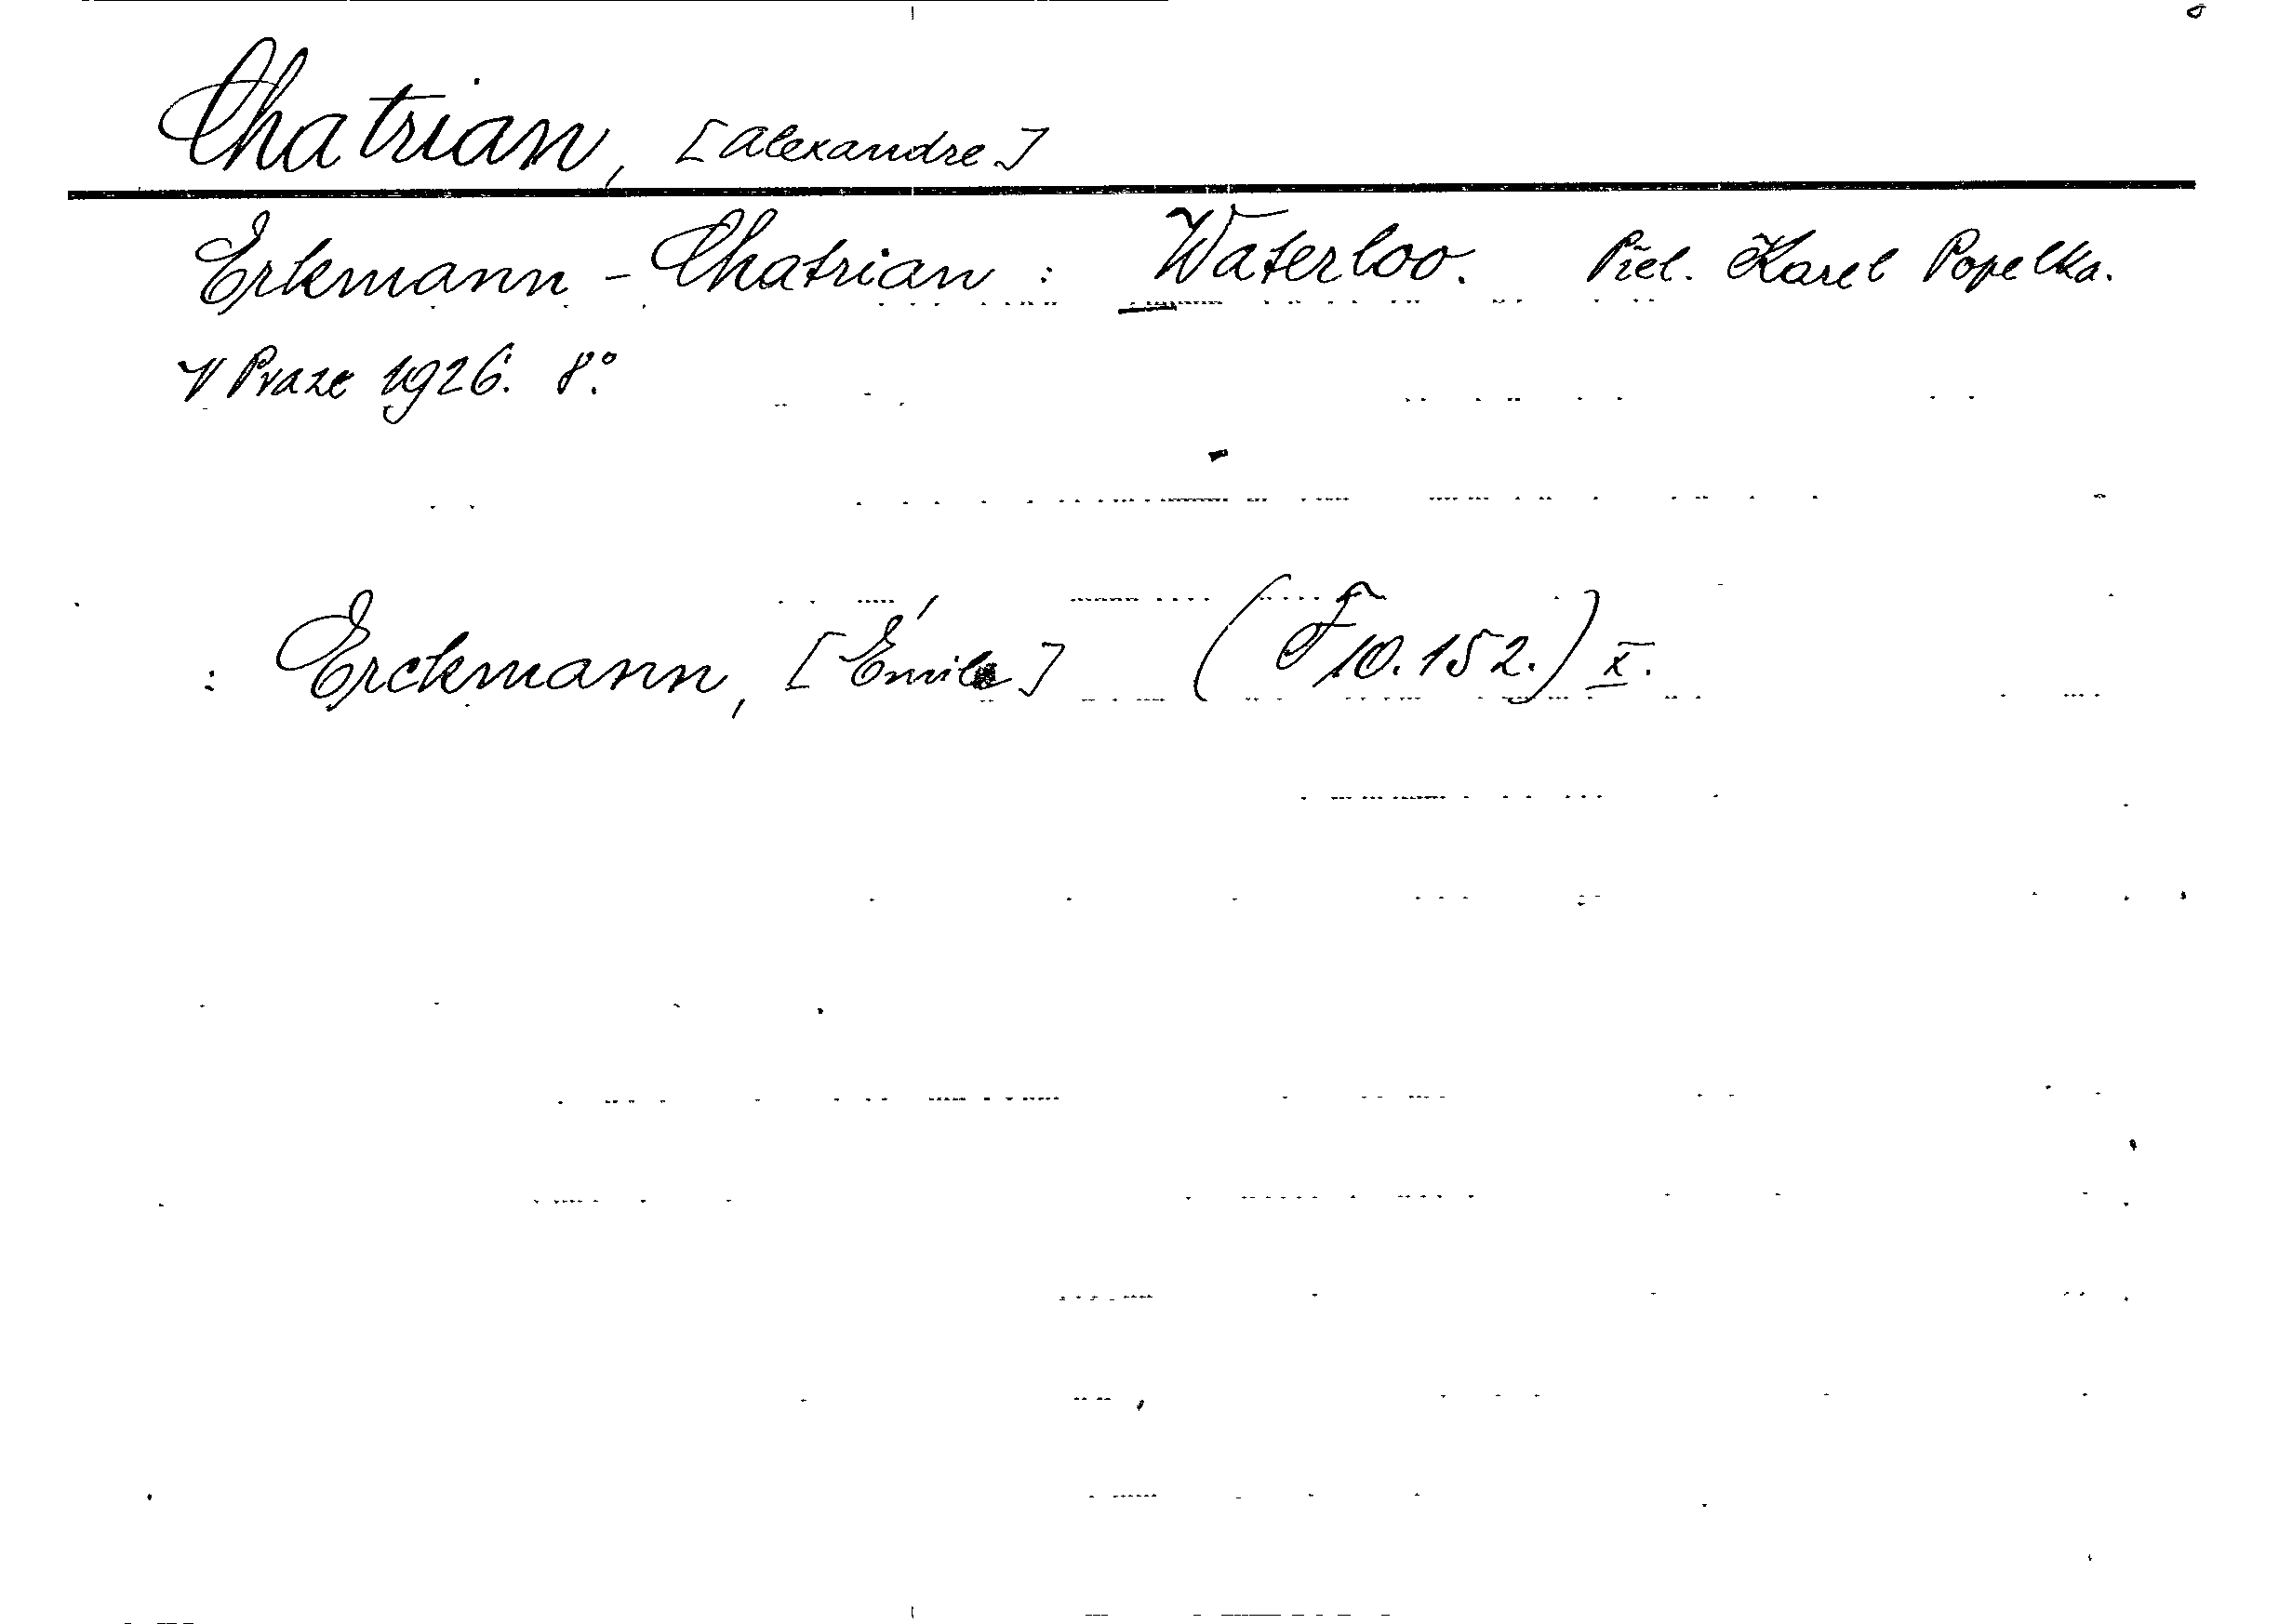 Chatrian, [Alexandre]
Erkmann - Chatrian : Waterloo. Přel. Karel Popelka.
V Praze 1926. 8°.
: Erckmann, [Émile] (F 10.152.) X.